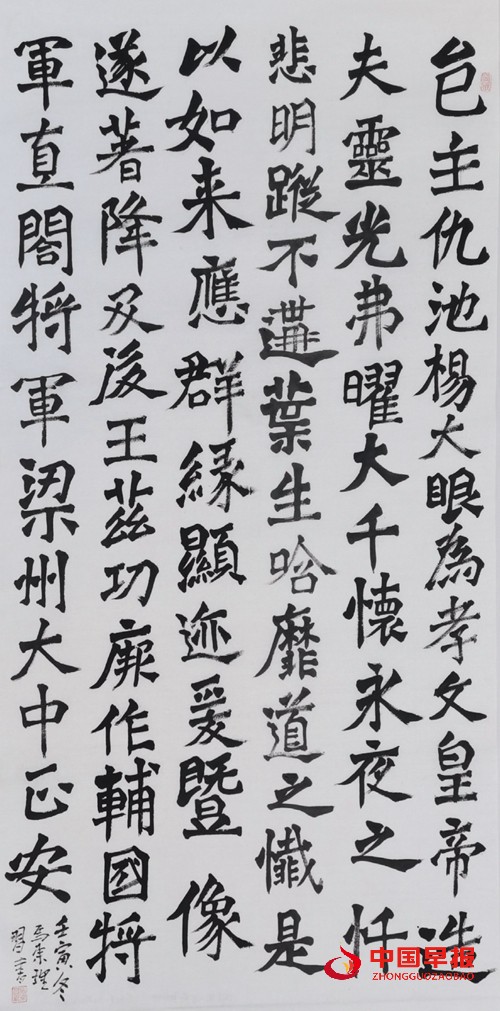 邑主仇池楊大眼為孝文皇帝造
夫靈光弗曜大千懷永夜之忏
悲明蹤不遘葉生哈靡道之懺是
以如来應群緣顯迹爰暨像
遂著降及後王茲功厥作輔國將
軍直閣將軍梁州大中正安
壬寅冬
習書
中国早报
ZHONGGUOZAOBAO